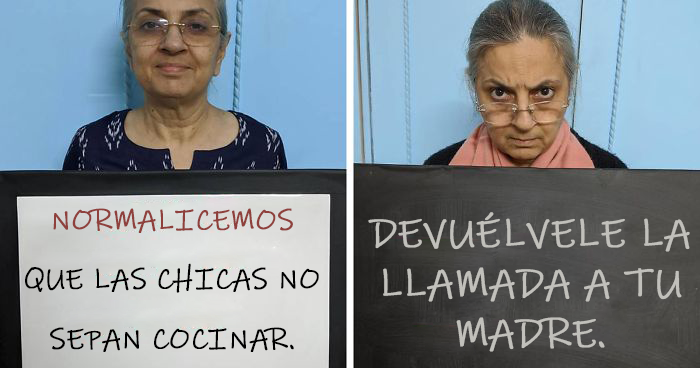 NORMALICEMOS
QUE LAS CHICAS NO
SEPAN COCINAR.
DEVUÉLVELE LA
LLAMADA A TU
MADRE.